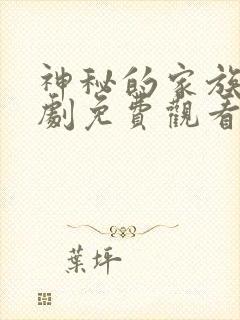 神秘的家族
劇免費觀看
葉坪